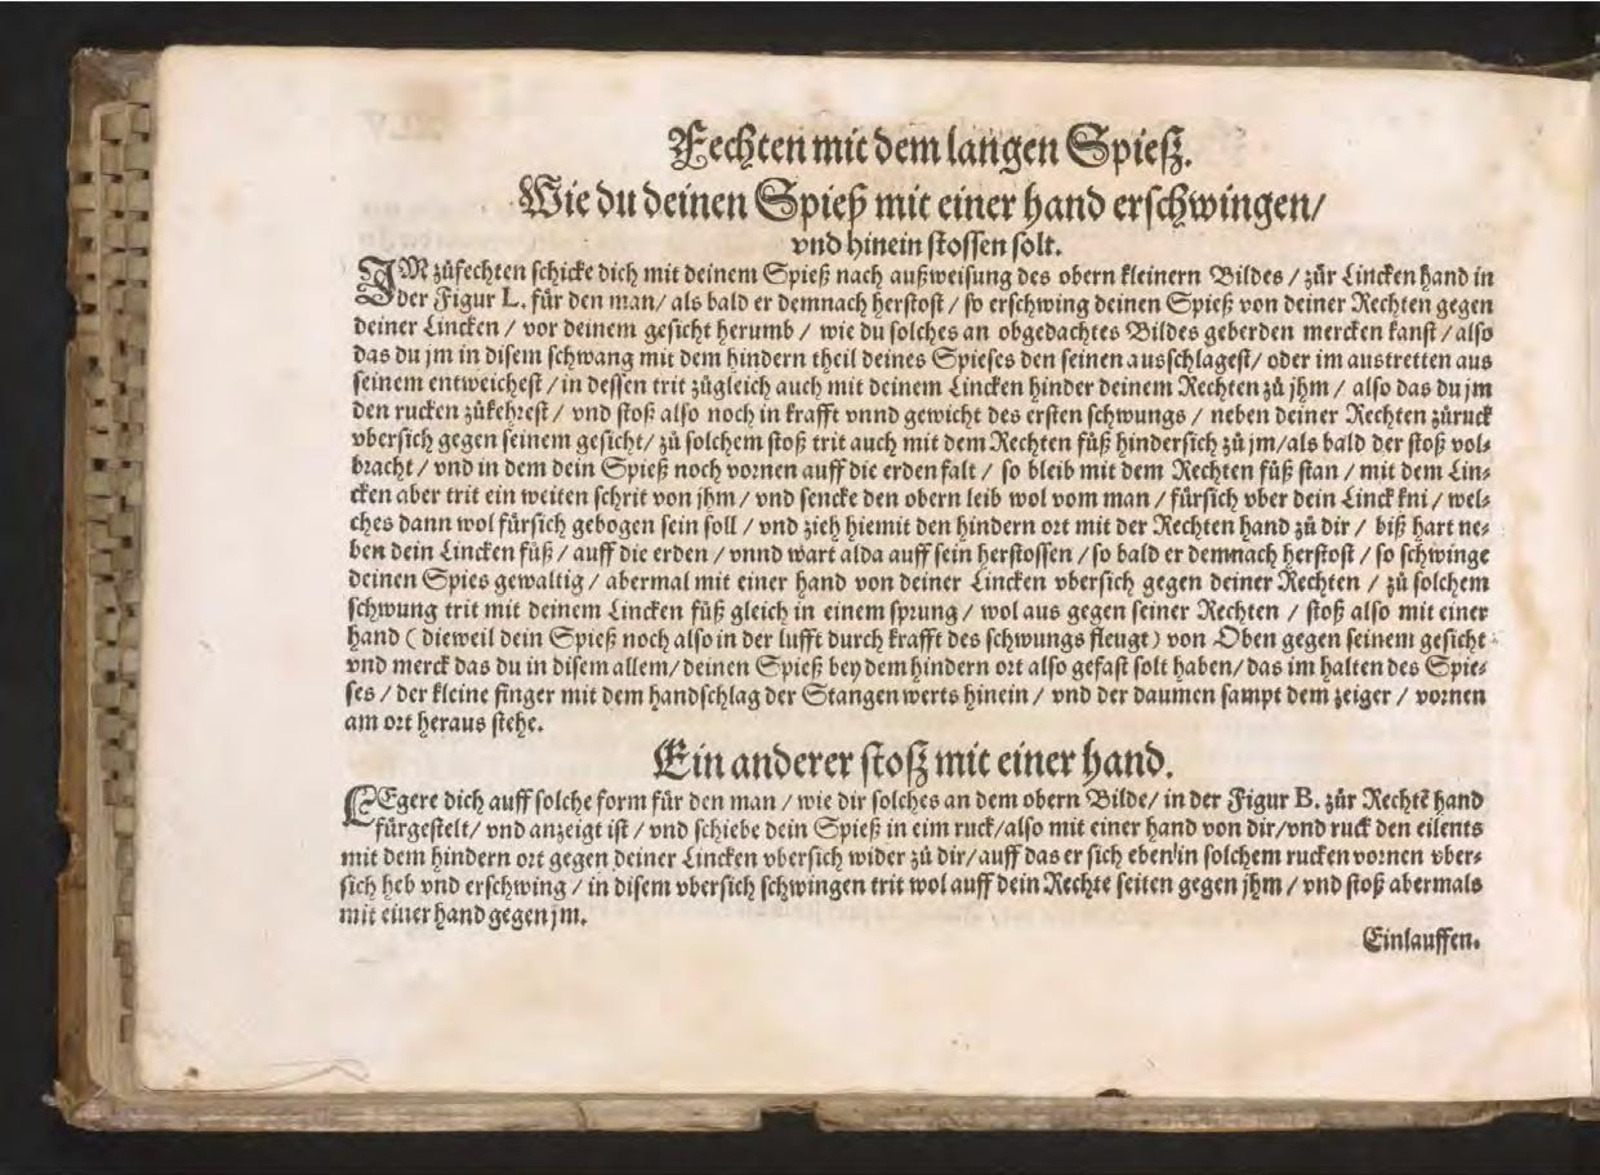 Fechten mit dem langen Spieß.
Wie du deinen Spieß mit einer hand erschwingen/
vnd hinein stossen solt.
IM zůfechten schicke dich mit deinem Spieß nach außweisung des obern kleinern Bildes / zůr Lincken hand in
der Figur L. für den man / als bald er demnach herstost / so erschwing deinen Spieß von deiner Rechten gegen
deiner Lincken / vor deinem gesicht herumb / wie du solches an obgedachtes Bildes geberden mercken kanst / also
das du jm in disem schwang mit dem hindern theil deines Spieses den seinen ausschlagest / oder im austretten aus
seinem entweichest / in dessen trit zůgleich auch mit deinem Lincken hinder deinem Rechten zů jhm / also das du jm
den rucken zůkehrest / vnd stoß also noch in krafft vnnd gewicht des ersten schwungs / neben deiner Rechten zůruck
vbersich gegen seinem gesicht / zů solchem stoß trit auch mit dem Rechten fůß hindersich zů jm / als bald der stoß vol-
bracht / vnd in dem dein Spieß noch vornen auff die erden falt / so bleib mit dem Rechten fůß stan / mit dem Lin-
cken aber trit ein weiten schrit von jhm / vnd sencke den obern leib wol vom man / fürsich vber dein Linck kni / wel-
ches dann wol fürsich gebogen sein soll / vnd zieh hiemit den hindern ort mit der Rechten hand zů dir / biß hart ne-
ben dein Lincken fůß / auff die erden / vnnd wart alda auff sein herstossen / so bald er demnach herstost / so schwinge
deinen Spies gewaltig / abermal mit einer hand von deiner Lincken vbersich gegen deiner Rechten / zů solchem
schwung trit mit deinem Lincken fůß gleich in einem sprung / wol aus gegen seiner Rechten / stoß also mit einer
hand ( dieweil dein Spieß noch also in der lufft durch krafft des schwungs fleugt ) von Oben gegen seinem gesicht
vnd merck das du in disem allem / deinen Spieß bey dem hindern ort also gefast solt haben / das im halten des Spie-
ses / der kleine finger mit dem handschlag der Stangen werts hinein / vnd der daumen sampt dem zeiger / vornen
am ort heraus stehe.
Ein anderer stoß mit einer hand.
LEgere dich auff solche form für den man / wie dir solches an dem obern Bilde / in der Figur B. zůr Rechtē hand
fürgestelt / vnd anzeigt ist / vnd schiebe dein Spieß in eim ruck / also mit einer hand von dir / vnd ruck den eilents
mit dem hindern ort gegen deiner Lincken vbersich wider zů dir / auff das er sich eben in solchem rucken vornen vber-
sich heb vnd erschwing / in disem vbersich schwingen trit wol auff dein Rechte seiten gegen jhm / vnd stoß abermals
mit einer hand gegen jm.
Einlauffen.